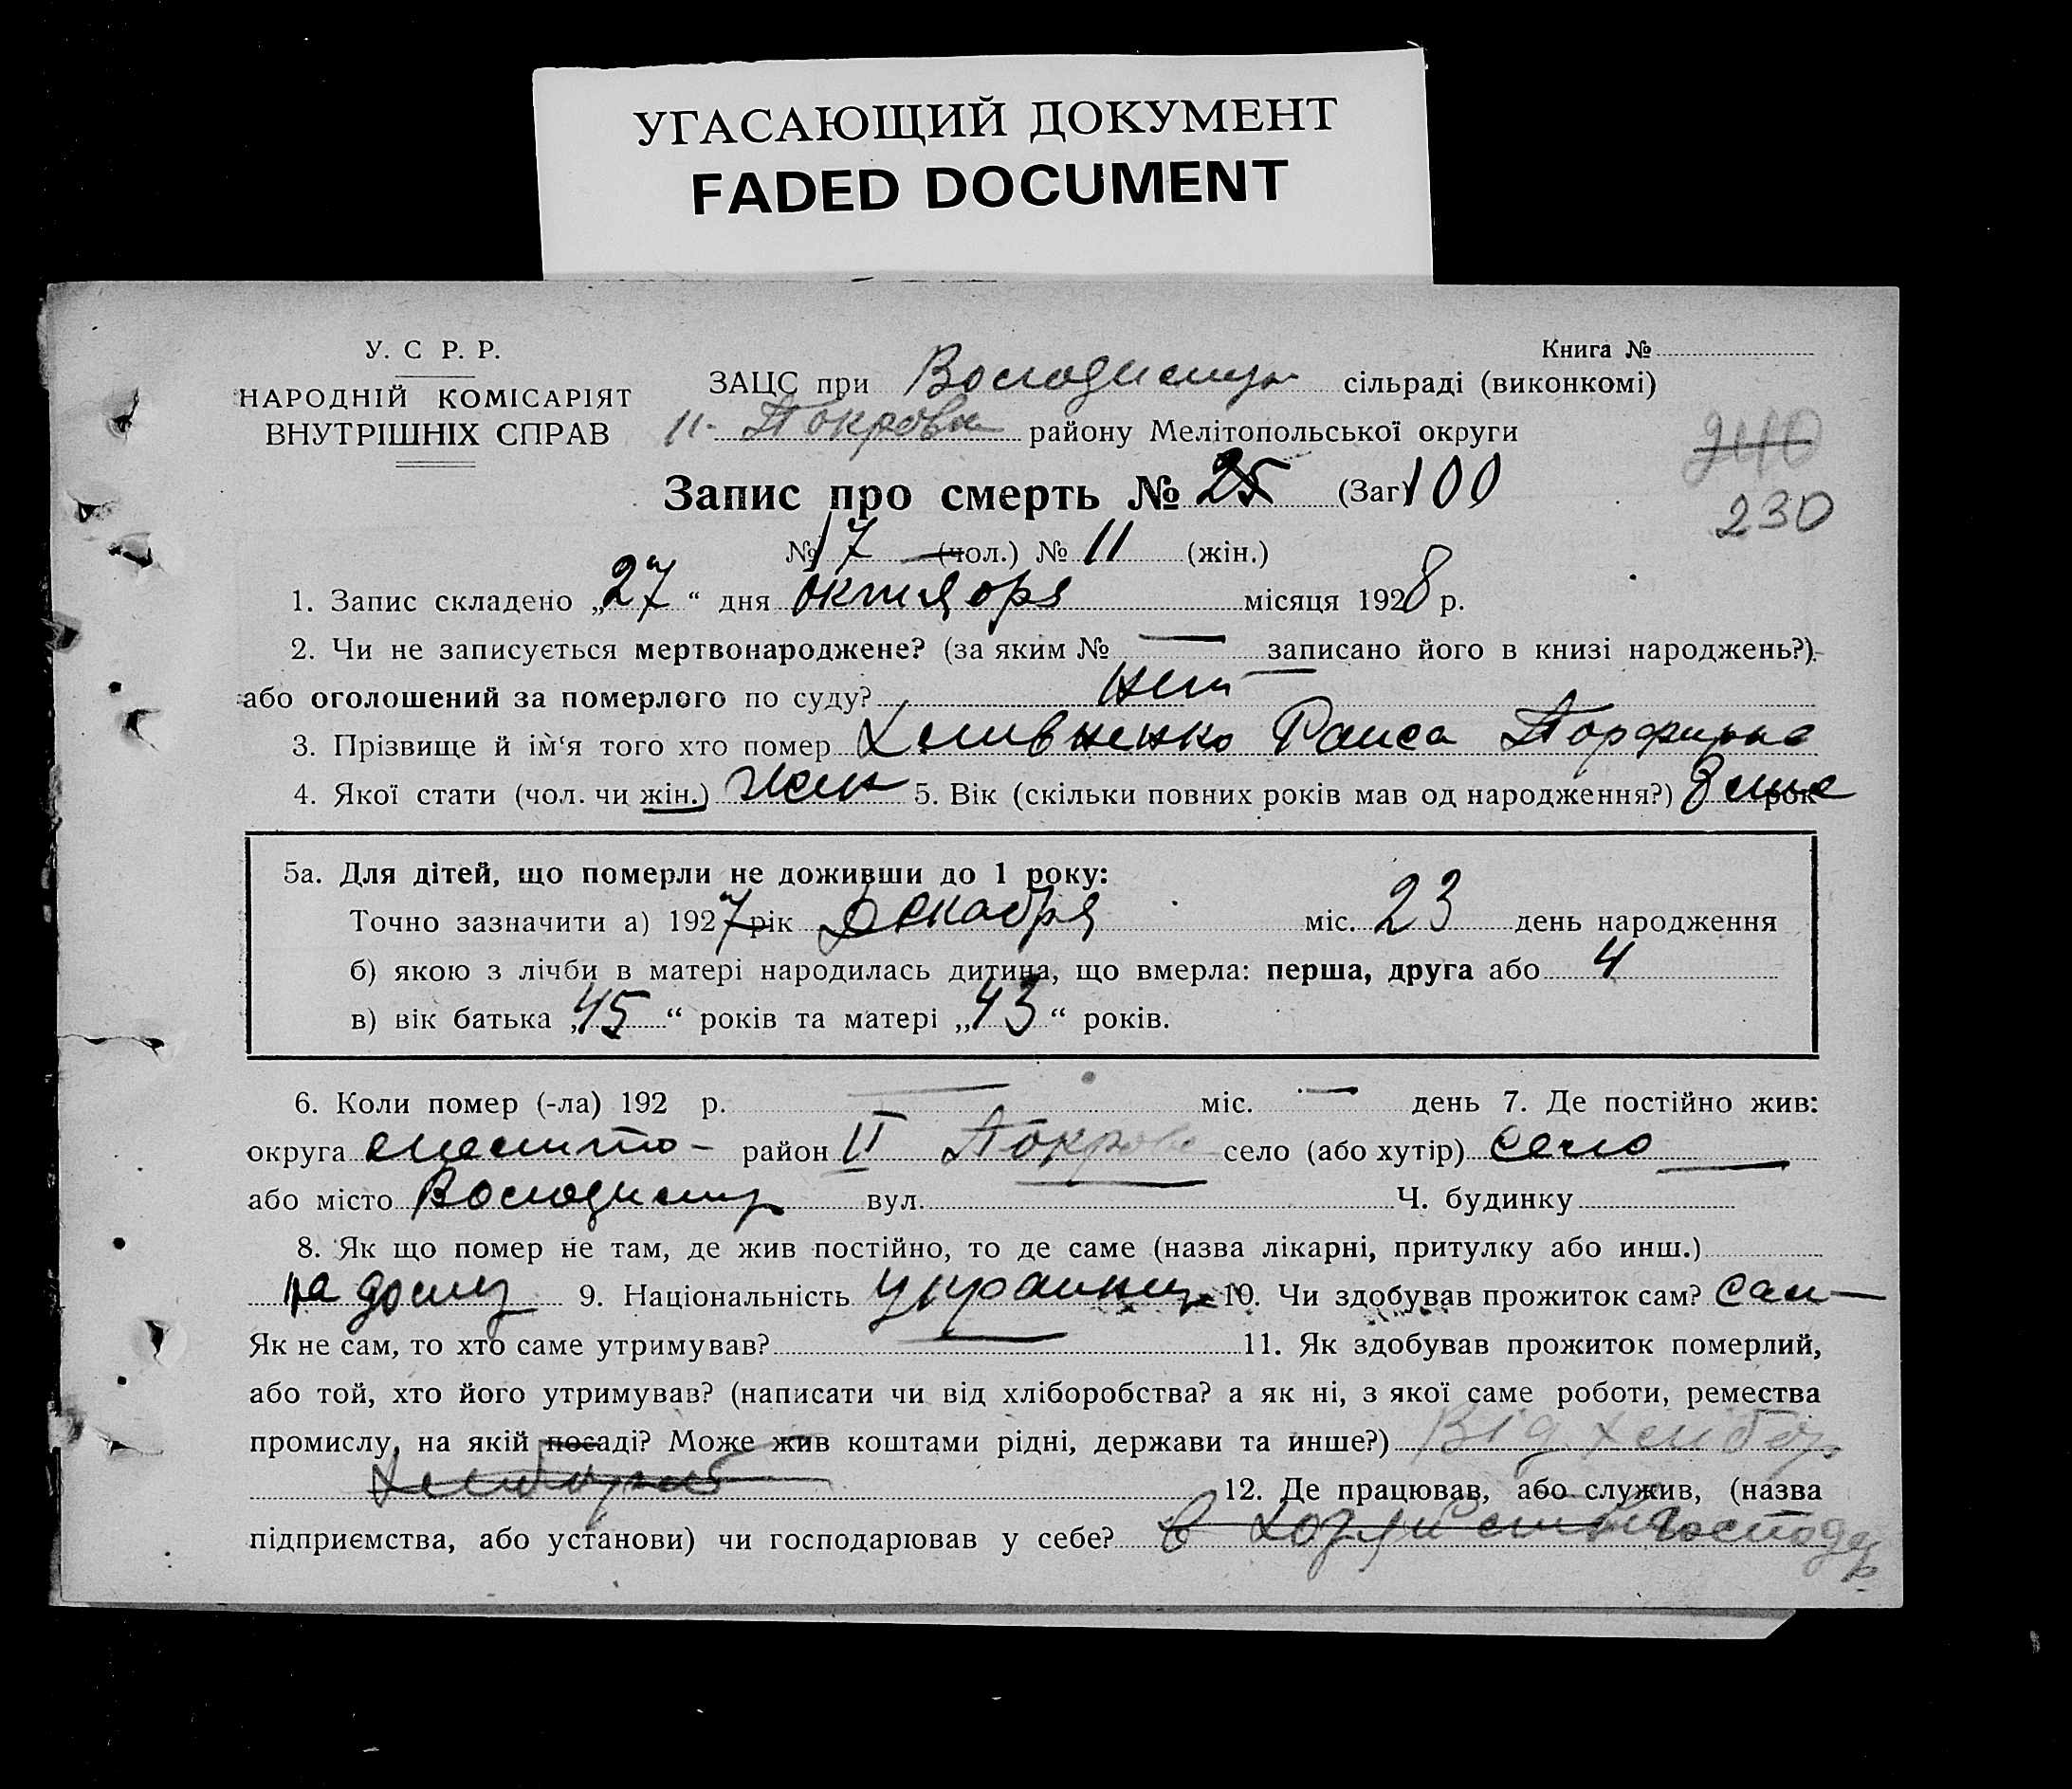 УГАСАЮЩИЙ ДОКУМЕНТ
FADED DOCUMENT
У. С Р. Р.
НАРОДНІЙ КОМІСАРІЯТ
ВНУТРІШНІХ СПРАВ
Книга №
ЗАЦС при сільраді (виконкомі)
Покровк району Мелітопольської округи
240
230
Запис про смерть № 25 (Заг) 100
№ 17 (чол.) № 11 (жін.)
1. Запис складено „27“ дня октября місяця 1928 р.
2. Чи не записується мертвонароджене? (за яким № — записано його в книзі народжень?)
або оголошений за померлого по суду? нет
3. Прізвище й ім‘я того хто помер Раиса
4. Якої стати (чол. чи жін.) жен 5. Вік (скільки повних років мав од народження?) рок
5а. Для дітей, що померли не доживши до 1 року:
Точно зазначити а) 1927 рік Декабря міс. 23 день народження
б) якою з лічби в матері народилась дитина, що вмерла: перша, друга або 4
в) вік батька „45“ років та матері „43“ років.
6. Коли помер (-ла) 192 р. — міс. — день 7. Де постійно жив:
округа район II Покровс село (або хутір) село
або місто вул. Ч. будинку
8. Як що помер не там, де жив постійно, то де саме (назва лікарні, притулку або инш.)
на дому 9. Національність 10. Чи здобував прожиток сам? сам
Як не сам, то хто саме утримував? 11. Як здобував прожиток померлий,
або той, хто його утримував? (написати чи від хліборобства? а як ні, з якої саме роботи, ремества
промислу, на якій посаді? Може жив коштами рідні, держави та инше?) Від хлібор
12. Де працював, або служив, (назва
підприємства, або установи) чи господарював у себе? в